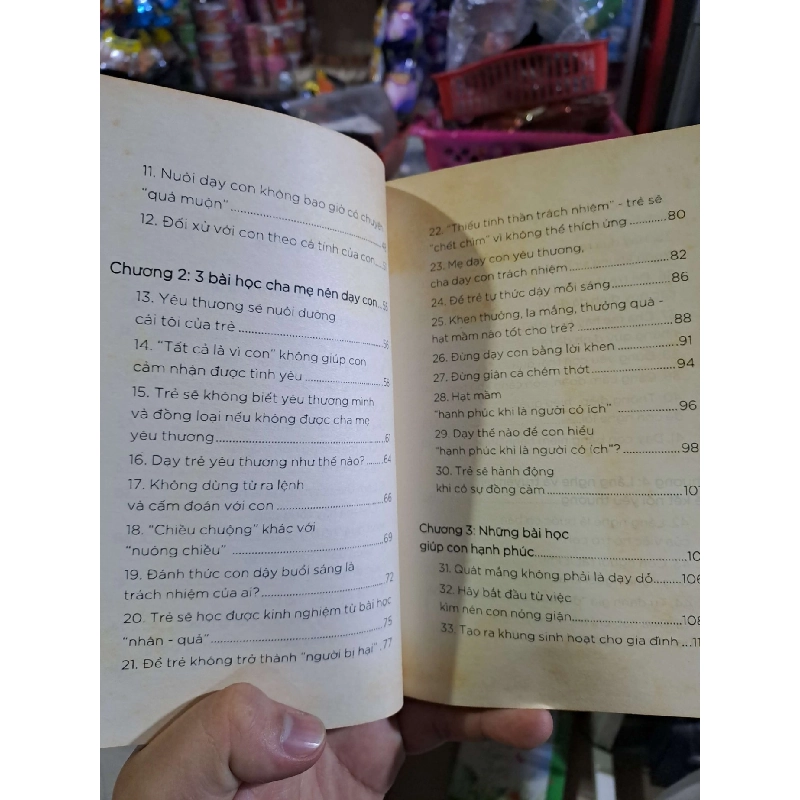 11. Nuôi dạy con không bao giờ có chuyện
"quá muộn"
12. Đối xử với con theo cá tính của con
Chương 2: 3 bài học cha mẹ nên dạy con
13. Yêu thương sẽ nuôi dưỡng
cái tôi của trẻ
14. "Tất cả là vì con" không giúp con
cảm nhận được tình yêu
15. Trẻ sẽ không biết yêu thương mình
và đồng loại nếu không được cha mẹ
yêu thương
16. Dạy trẻ yêu thương như thế nào? 64
17. Không dùng từ ra lệnh
và cấm đoán với con 66
18. "Chiều chuộng" khác với
"nuông chiều" 69
19. Đánh thức con dậy buổi sáng là
trách nhiệm của ai? 72
20. Trẻ sẽ học được kinh nghiệm từ bài học
"nhân - quả" 75
21. Để trẻ không trở thành "người bị hại" 77
22. "Thiếu tinh thần trách nhiệm" - trẻ sẽ
"chết chìm" vì không thể thích ứng 80
23. Mẹ dạy con yêu thương,
cha dạy con trách nhiệm 82
24. Để trẻ tự thức dậy mỗi sáng 86
25. Khen thưởng, la mắng, thưởng quà -
hạt mầm nào tốt cho trẻ? 88
26. Đừng dạy con bằng lời khen 91
27. Đừng giận cá chém thớt 94
28. Hạt mầm
"hạnh phúc khi là người có ích" 96
29. Dạy thế nào để con hiểu
"hạnh phúc khi là người có ích"? 98
30. Trẻ sẽ hành động
khi có sự đồng cảm 101
Chương 3: Những bài học
giúp con hạnh phúc
31. Quát mắng không phải là dạy dỗ 106
32. Hãy bắt đầu từ việc
kìm nén cơn nóng giận 108
33. Tạo ra khung sinh hoạt cho gia đình